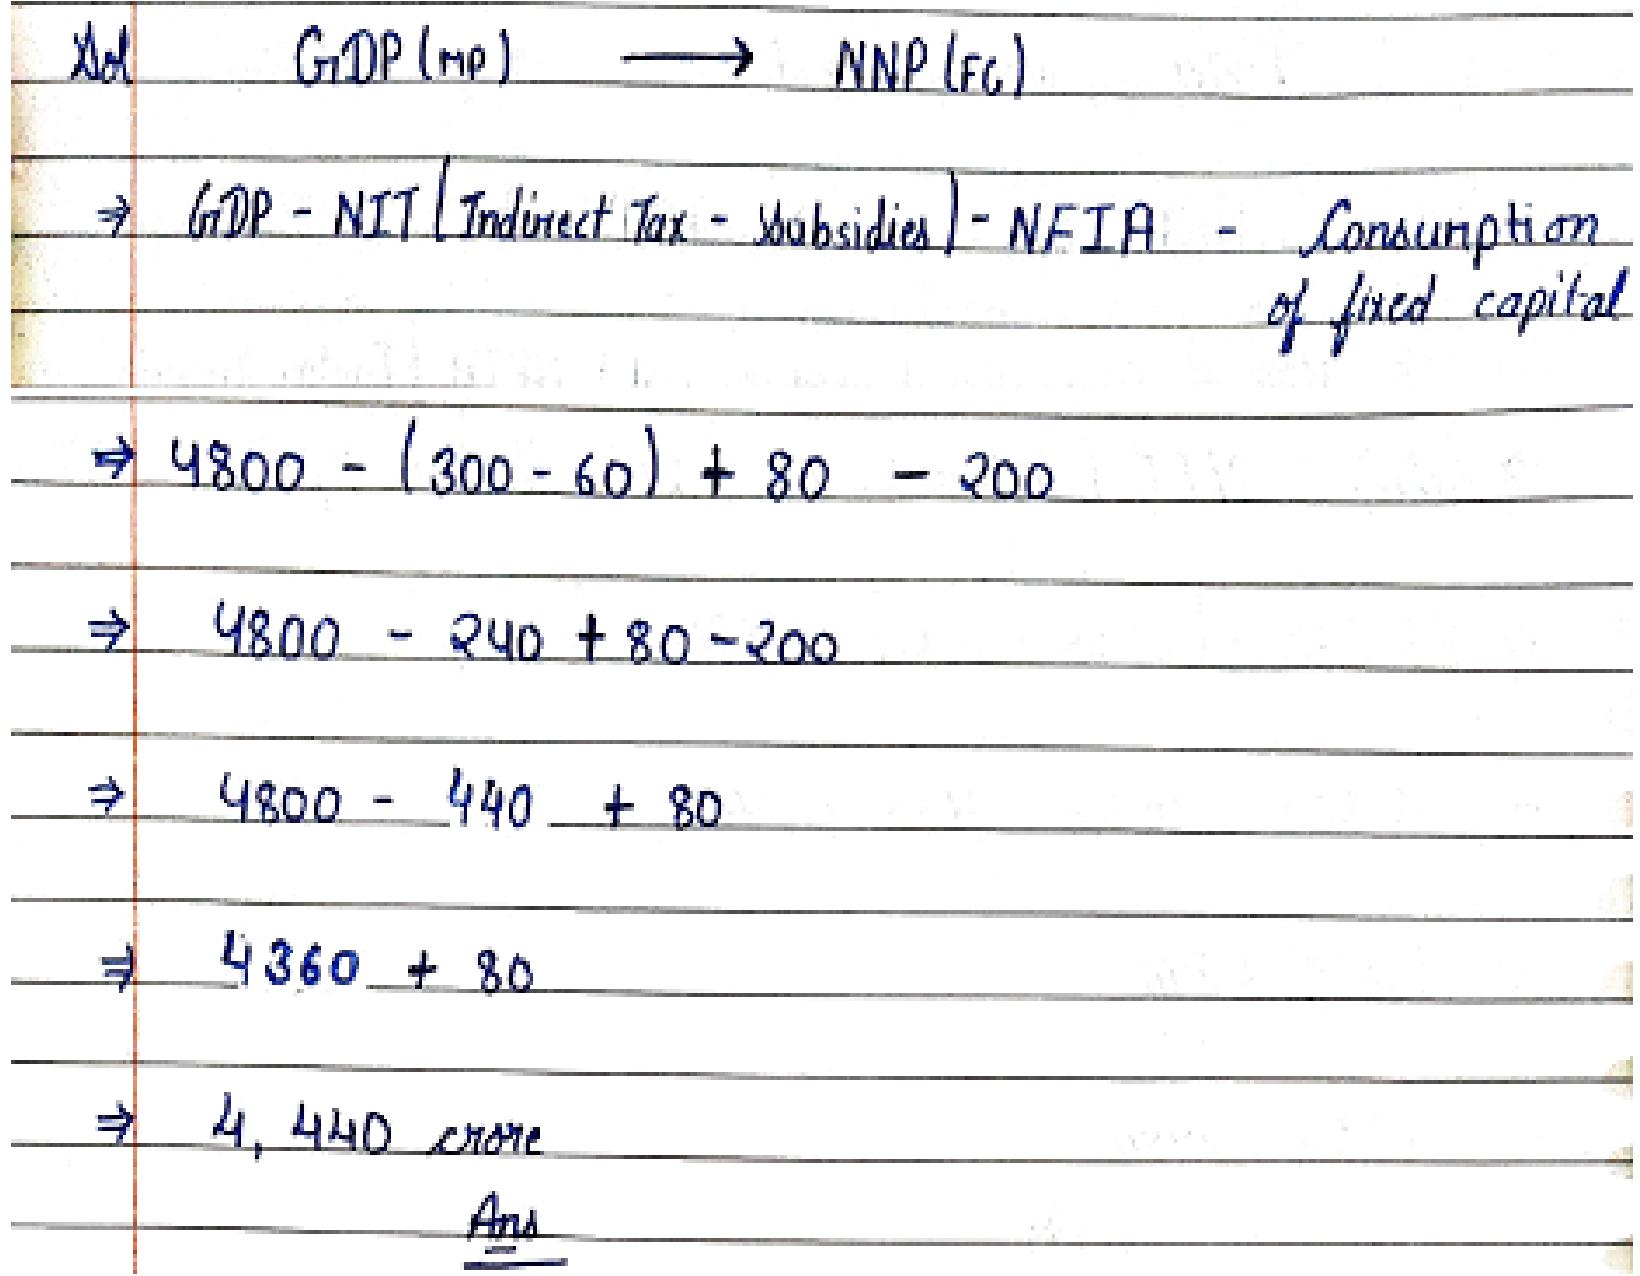 Sol GDP (MP) ⟶ NNP (FC)
⇒ GDP - NIT (Indirect Tax - Subsidies) - NFIA - Consumption
of fixed capital
⇒ 4800 - (300 - 60) + 80 - 200
⇒ 4800 - 240 + 80 - 200
⇒ 4800 - 440 + 80
⇒ 4360 + 80
⇒ 4,440 crore
Ans